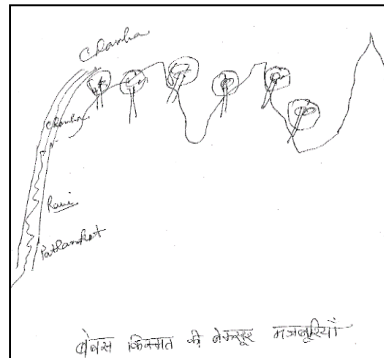 Chamba
Chamba
Ravi
Pathankot
बेबस किस्मत की बेकसूर मजबूरियाँ